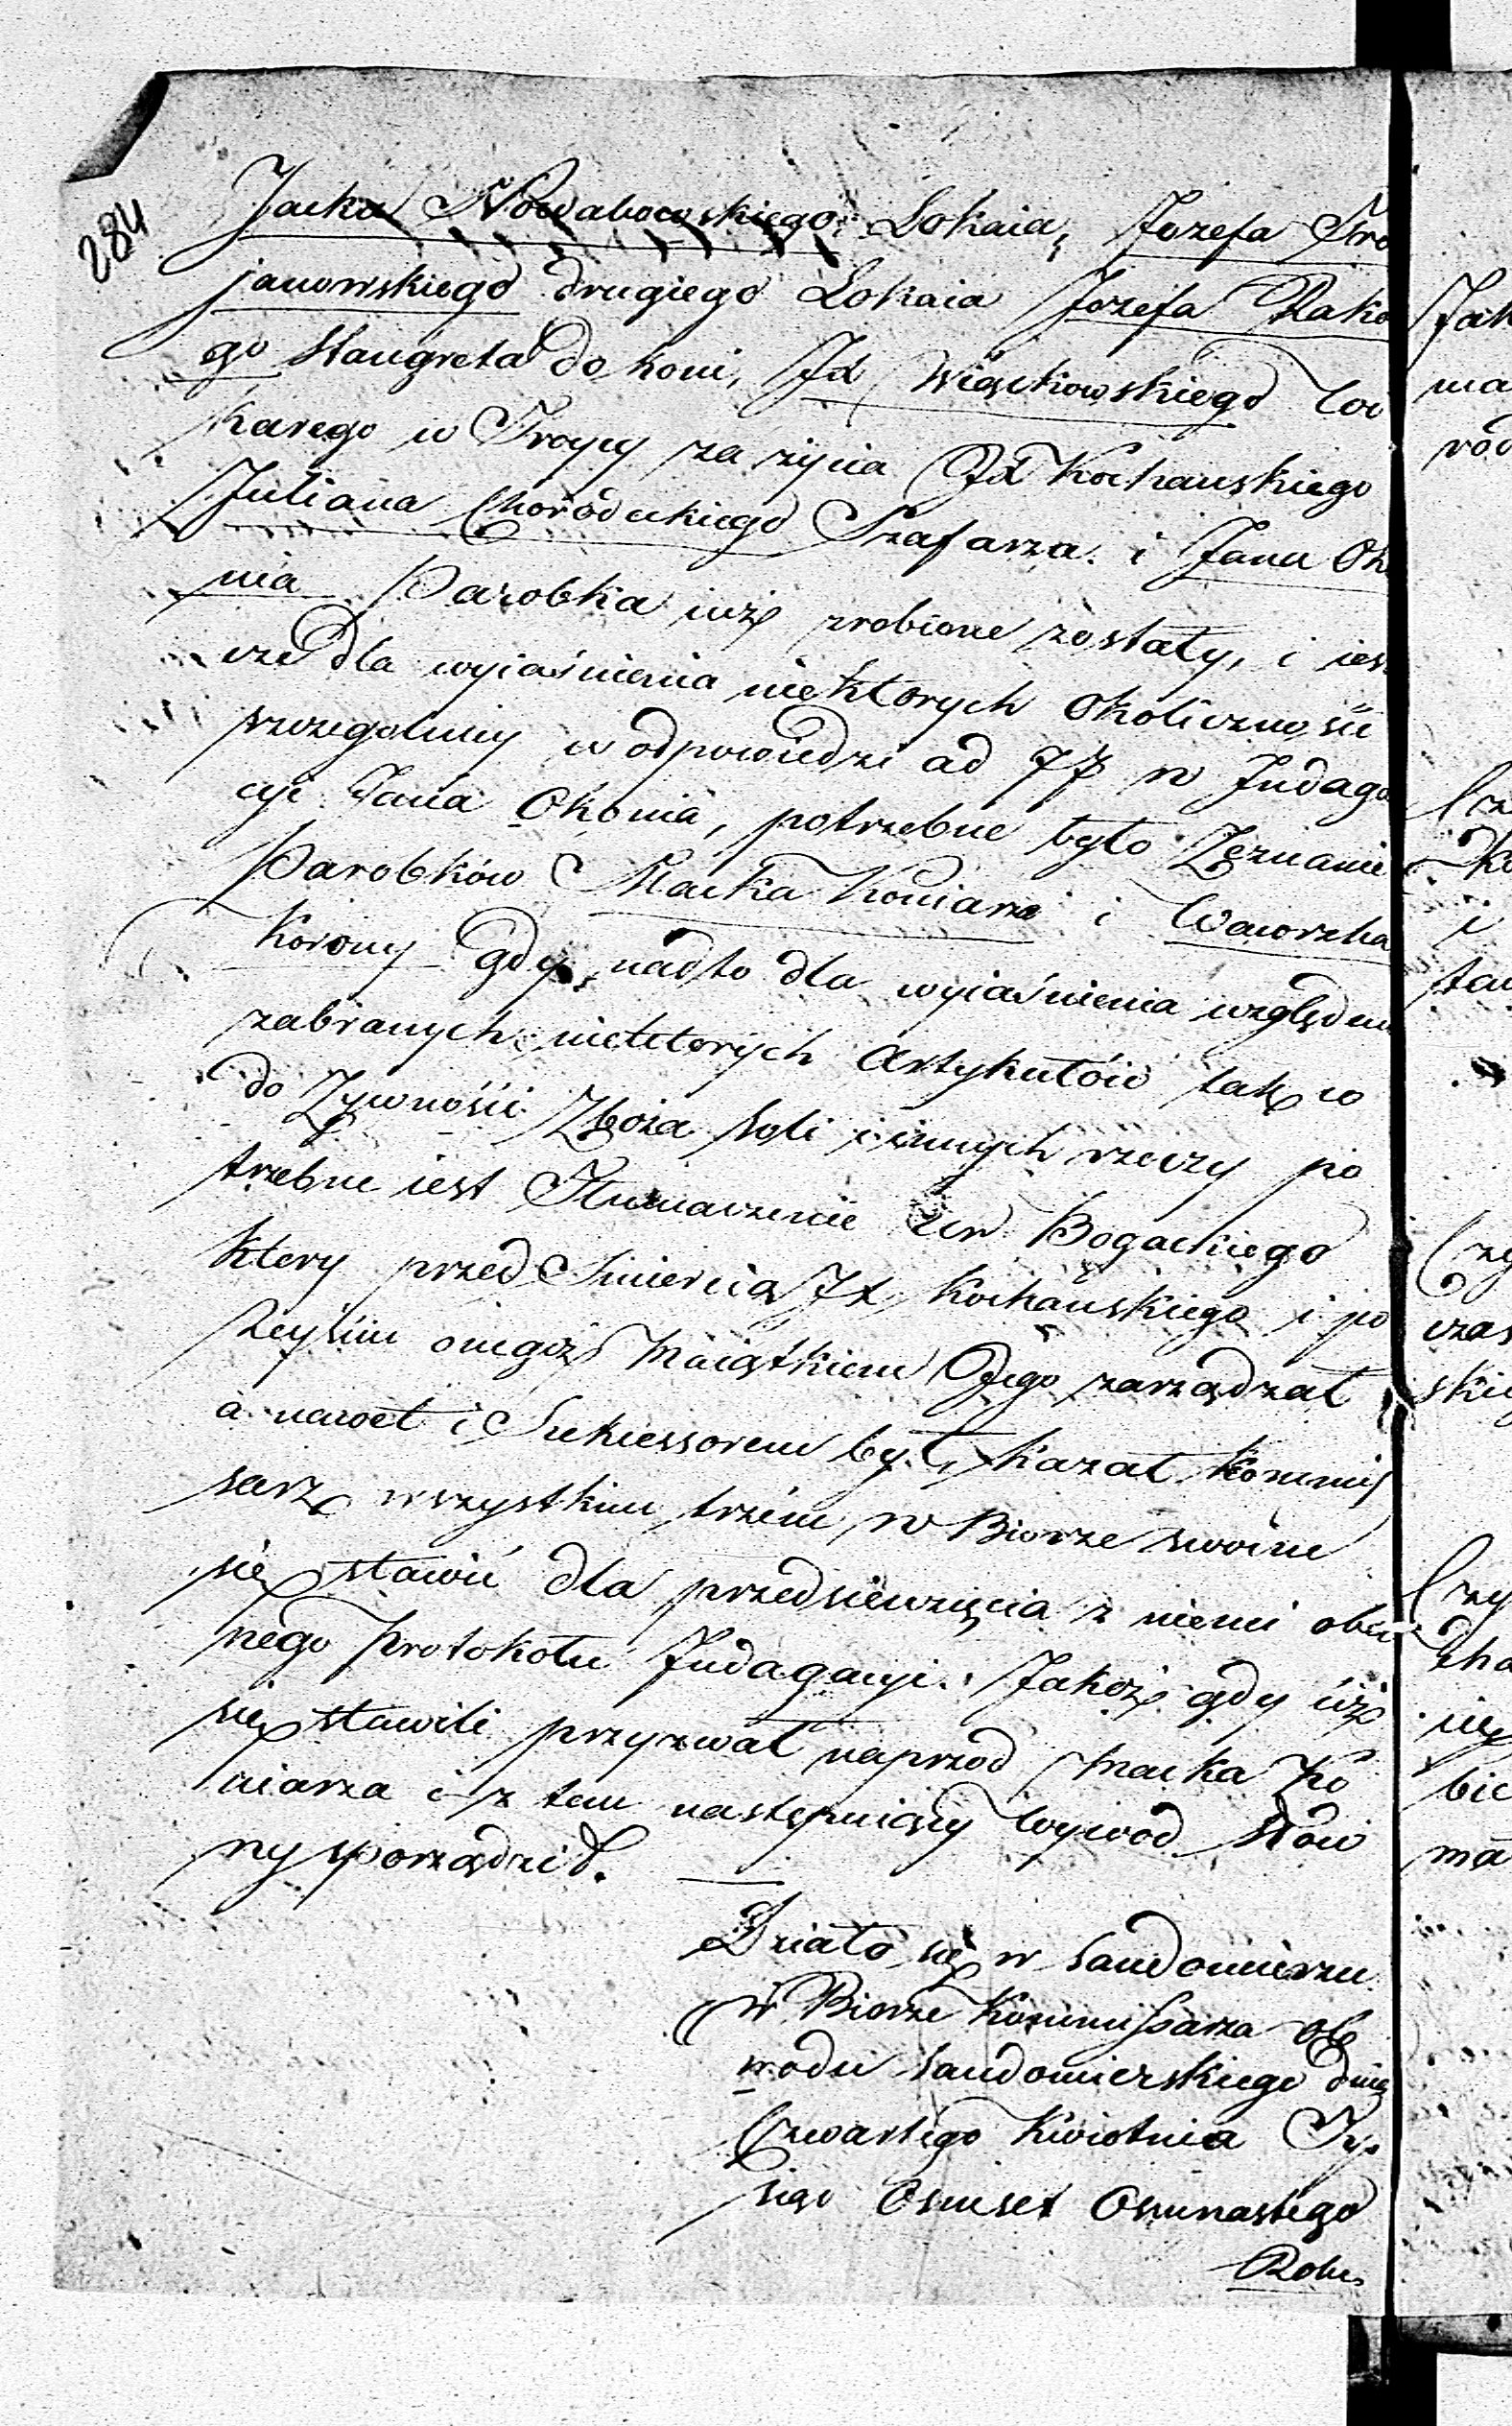 284
Jacka Nowakowskiego Lokaia, Jozefa Tro
janowskiego drugiego Lokaia Jozefa Rako
go Stangreta do koni, Jx Więckowskiego Wi
karego w Troycy za życia Jx Kochanskiego
Juliana Chorodeckiego Szafarza i Jana Oko
nia Parobka iuż zrobione zostały, i iesz
cze dla wyiaśnienia niektorych okoliczności
szczegolniey w odpowiedzi ad 7 w Indaga
cyi Jana Okonia, potrzebne było Zeznanie
Parobków Macka Koniarza i Wawrzka
Korony gdy nadto dla wyiaśnienia względem
zabranych niektorych Artykułów tak co
do Żywności Zboża Soli i innych rzeczy po
trzebne iest Tłumaczenie Ur Bogackiego
ktory przed Smiercią Jx Kochańskiego i po
zeyściu onegoż Maiątkiem Jego zarządzał
a nawet i Sukcessorem był, kazał Kommis
sarz wszystkim trzem w Biorze swoim
się stawić dla przedsiewzięcia z niemi obec
nego protokołu Indagacyi. Jakoż gdy iuż
się stawili przyzwał naprzod Macka Ko
niarza i z tem następuiący wywod Słow
ny sporządził.
Działo się w Sandomierzu
w Biorze Kommissarza ob
wodu Sandomierskiego dnia
Czwartego Kwietnia Ty
siąc Osmset Osmnastego
Roku